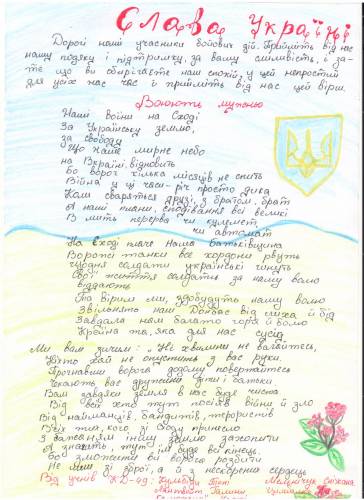 Слава Україні
Дорогі наші учасники бойових дій. Прийміть від нас
нашу подяку і підтримку, за вашу сміливість, і за-
те що ви оберігаєте наш спокій у цей непростий
для усіх нас час і прийміть від нас цей вірш.
Воюють мужньо
Наші воїни на Сході
За Українську землю,
за свободу
Що наше мирне небо
на Вкраїні відновить
Бо ворог кілька місяців не спить
Війна у ці часи - річ просто дика
Коли сваряться друзі, з братом, брат
А наші плани, сподівання всі великі
В мить перерва чи кулемет,
чи автомат
На Сході плаче наша Батьківщина
Ворожі танки все кордони рвуть
Щодня солдати українські гинуть
Свої життя солдати за нашу волю
віддають
Та вірим ми, здобудуть нашу волю
Звільнять наш Донбас від лиха й бід
Завдала нам багато горя й болю
Країна та, яка для нас сусід
Ми вам зичим: "Ні хвилини не вагайтесь,
Ніхто хай не опустить з вас руки.
Прогнавши ворога додому повертайтесь
Чекають вас дружини діти і батьки
Вам завдяки земля в нас буде чиста
Від всіх хто тут посіяв війни й зло
Від найманців, бандитів, терористів
Усіх тих, кого зі Сходу принесло
З бажанням іншу землю захопити
А знають, тут їм буде всі кінець.
Бо зможете ви ворога розбити
Не лиш зі зброї, а й з нескорених сердець
Від учнів